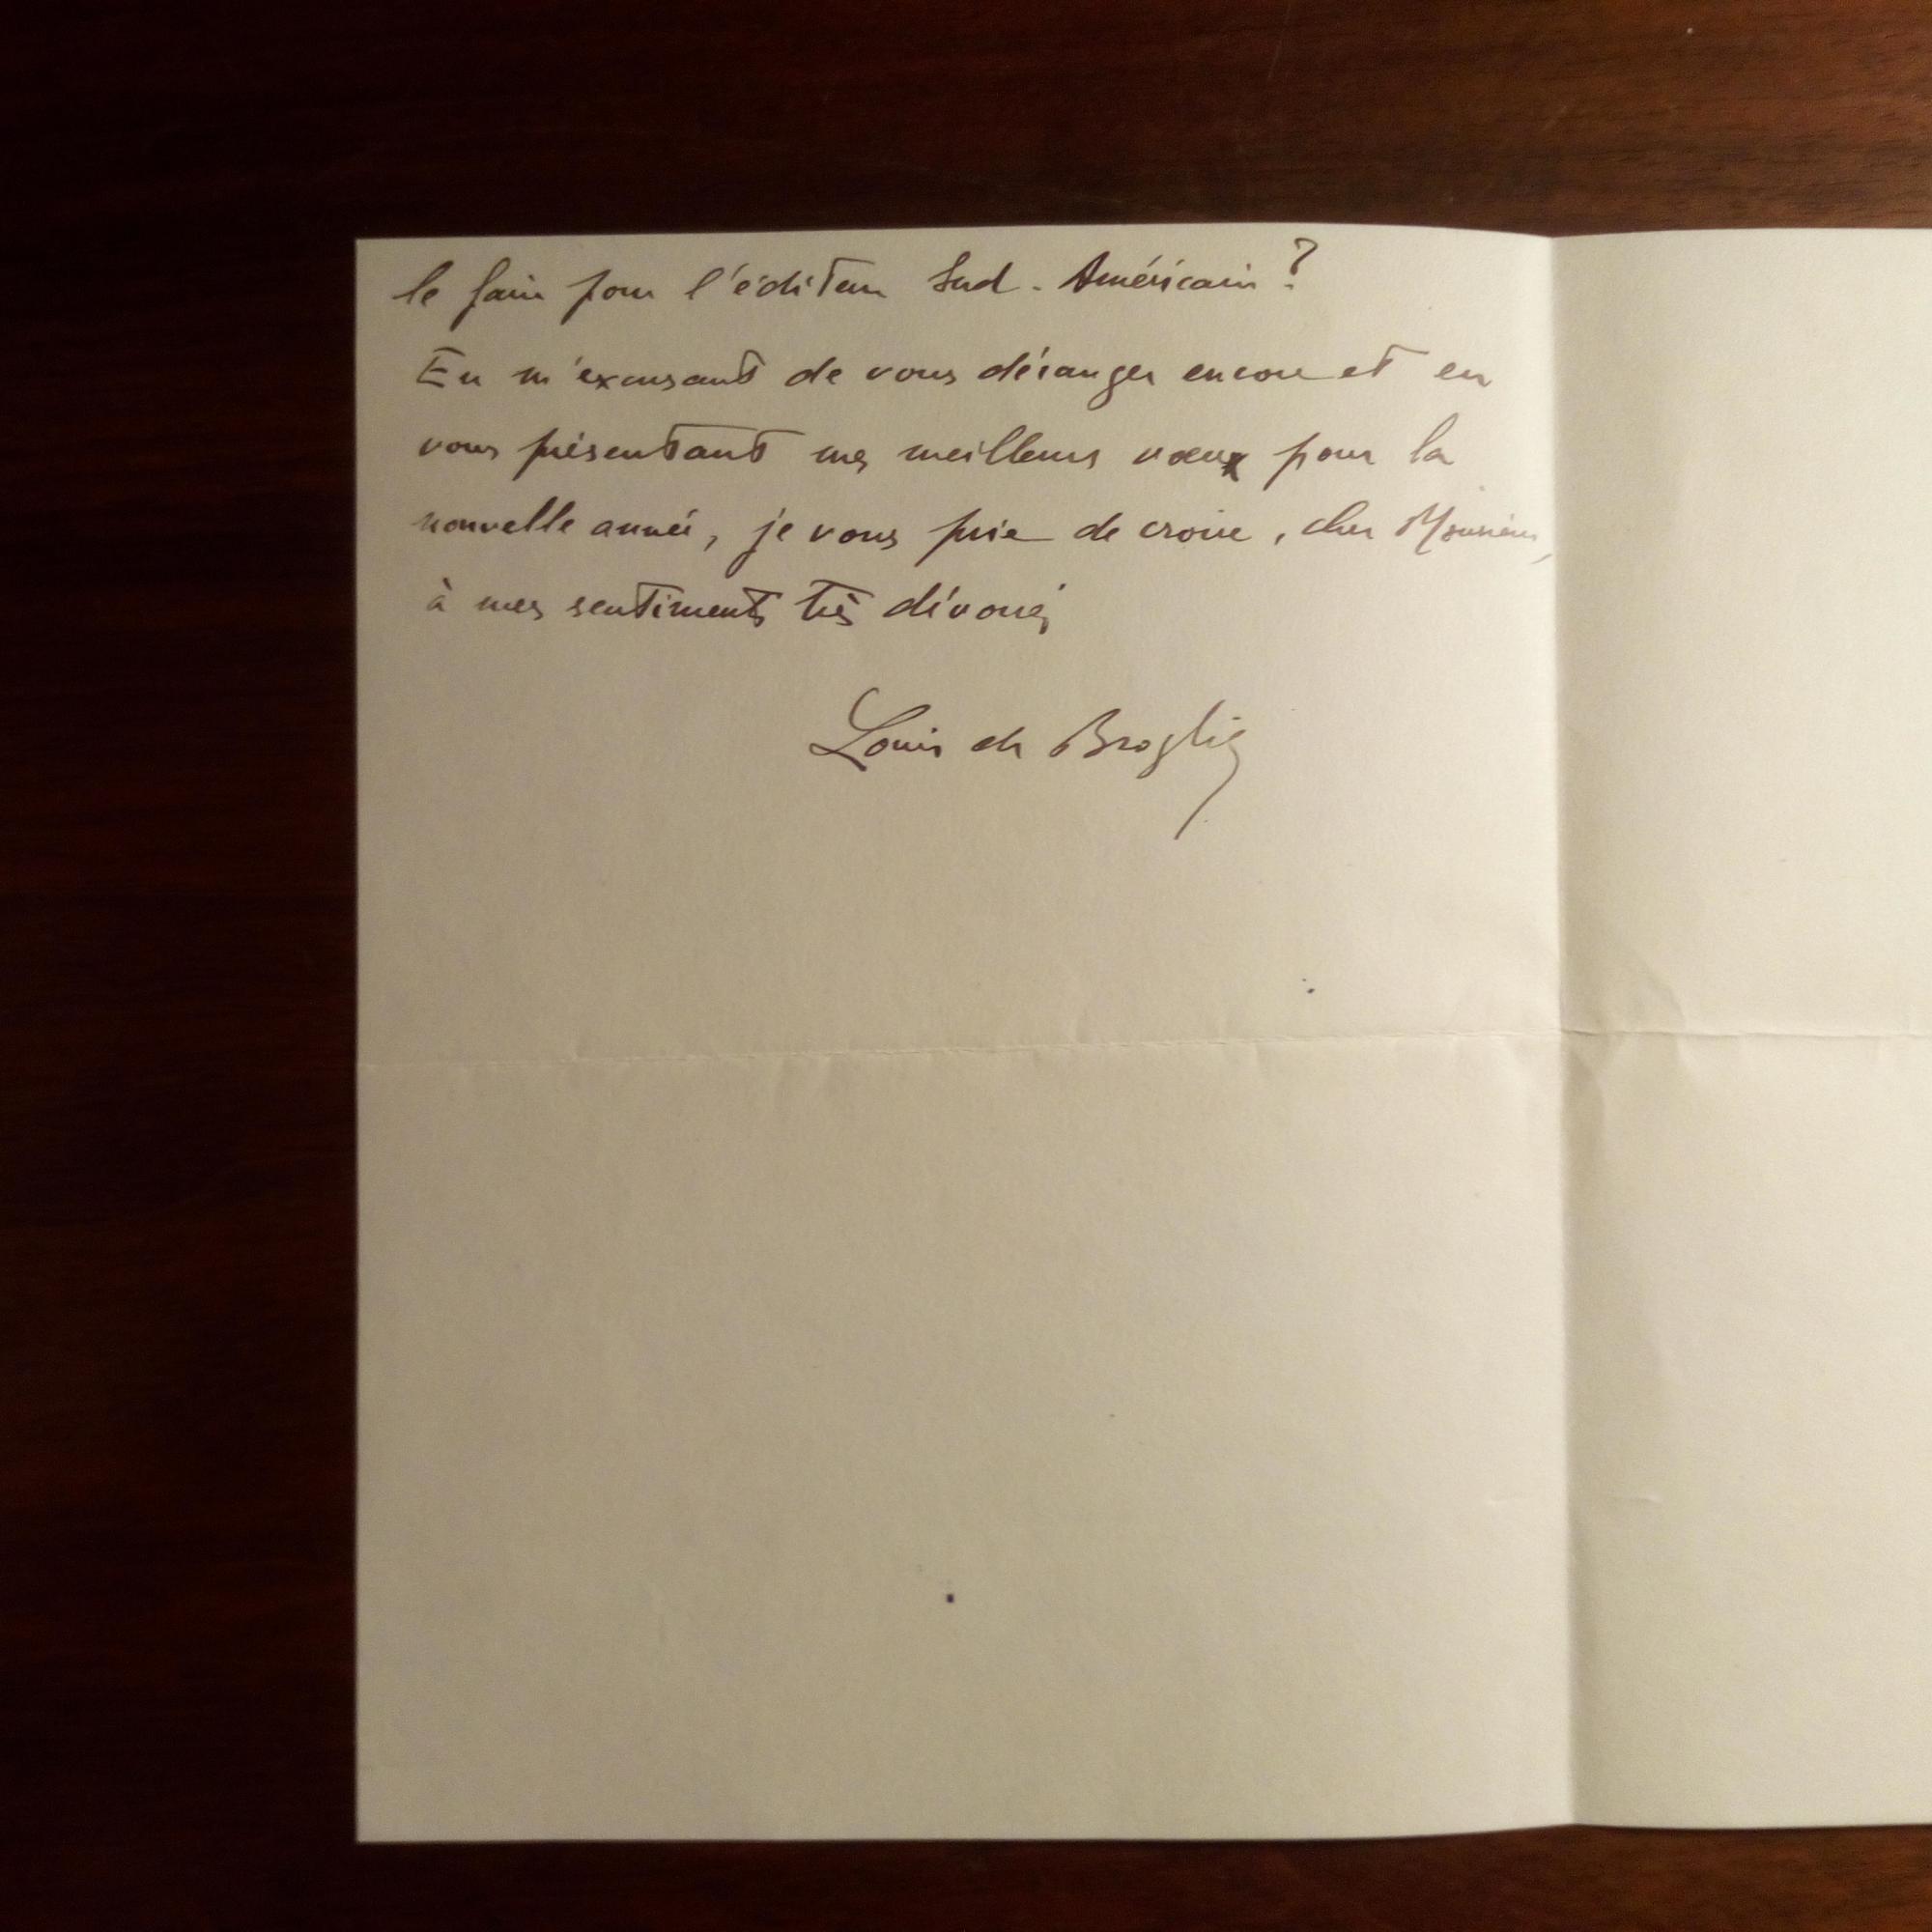 le faire pour l'éditeur Sud-Américain ?
En m'excusant de vous déranger encore et en
vous présentant mes meilleurs vœux pour la
nouvelle année, je vous prie de croire, cher Monsieur,
à mes sentiments très dévoués
Louis de Broglie